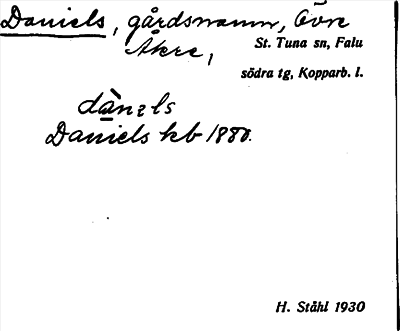 Daniels, gårdsnamn, Övre
Åkre,
St. Tuna sn, Falu
södra tg, Kopparb. l.
Daniels kb 1880.
H. Ståhl 1930